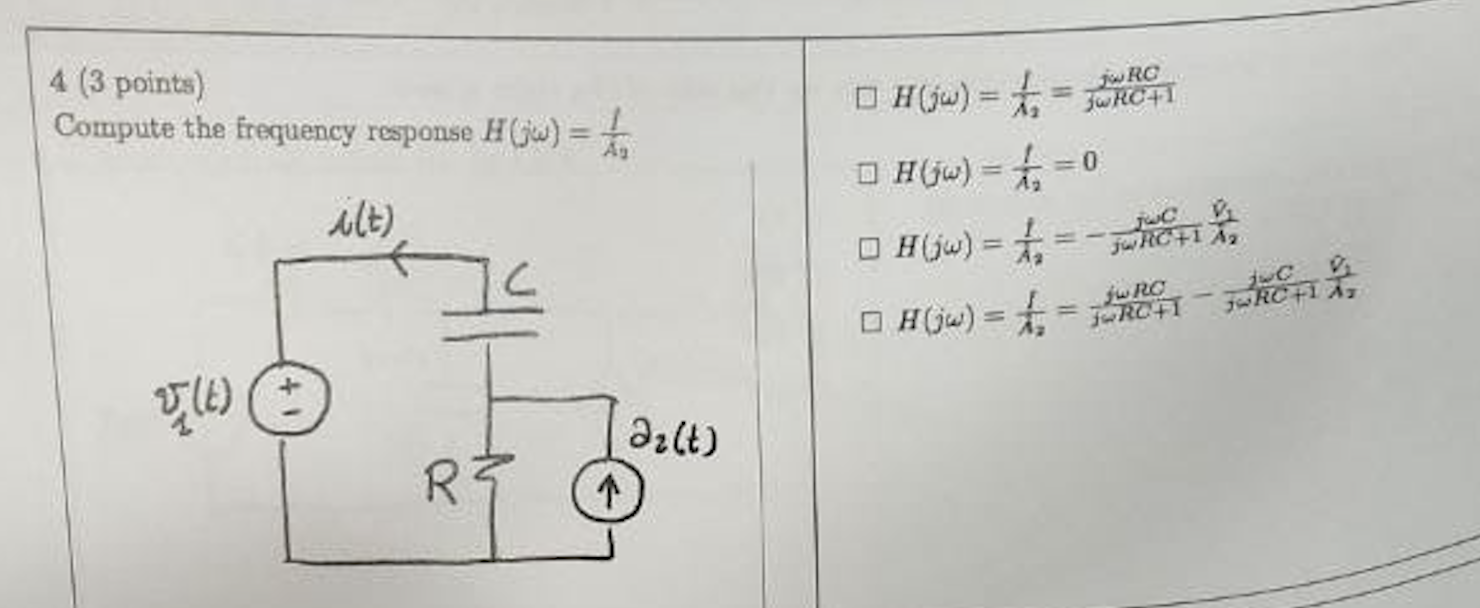 4 (3 points)
Compute the frequency response H(jω) = I/A₂
i(t)
C
v₁(t)
+
-
R
a₂(t)
□ H(jω) = I/A₂ = jωRC/(jωRC+1)
□ H(jω) = I/A₂ = 0
□ H(jω) = I/A₂ = -jωC/(jωRC+1) V₁/A₂
□ H(jω) = I/A₂ = jωRC/(jωRC+1) - jωC/(jωRC+1) V₁/A₂